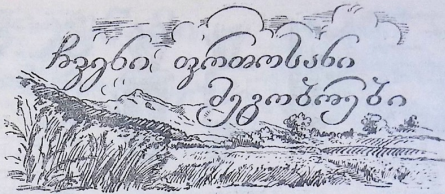 ჩვენი ფრთოსანი
მეგობრები